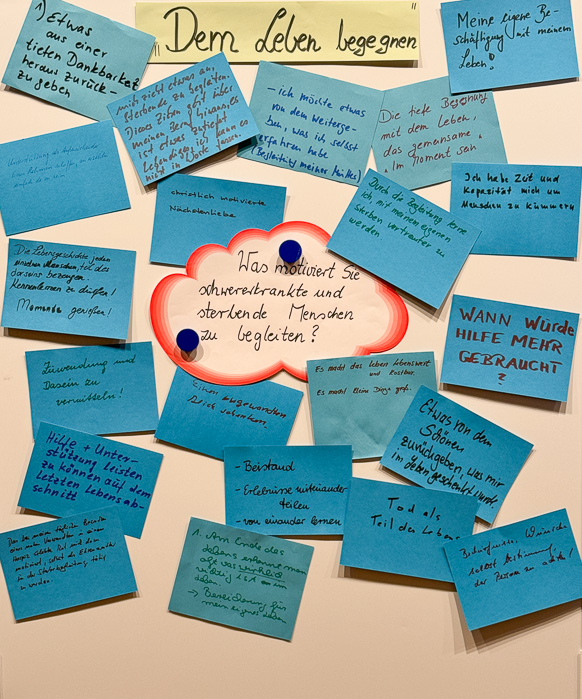 "Dem Leben begegnen"
1) Etwas
aus einer
tiefen Dankbarkeit
heraus zurück-
zu geben
mich zieht etwas an,
Sterbende zu begleiten.
Dieses Ziehen geht über
meinen Beruf hinaus, es
ist etwas zutiefst
Lebendiges, ich kann es
nicht in Worte fassen.
- ich möchte etwas
von dem Weiterge-
ben, was ich selbst
erfahren habe
(Begleitung meiner Mutter)
Die tiefe Begegnung
mit dem Leben,
das gemeinsame
"Im Moment sein"
Meine eigene Be-
schäftigung mit meinem
Leben!
christlich motivierte
Nächstenliebe
Durch die Begleitung lerne
ich mit meinem eigenen
Sterben vertrauter zu
werden
Ich habe Zeit und
Kapazität mich um
Menschen zu kümmern
Die Lebensgeschichte jeden
Menschen,
Kennenlernen zu dürfen!
Momente genießen!
Was motiviert Sie
schwererkrankte und
sterbende Menschen
zu begleiten?
WANN WÜRDE
HILFE MEHR
GEBRAUCHT
?
Zuwendung und
Dasein zu
vermitteln!
Es macht das Leben lebenswert
und kostbar.
Es macht kleine Dinge groß.
Etwas von dem
Schönen
zurückgeben, was mir
im Leben geschenkt wurde.
Hilfe + Unter-
stützung leisten
zu können auf dem
letzten Lebensab-
schnitt
- Beistand
- Erlebnisse miteinander
teilen
- von einander lernen
Tod als
Teil des Lebens
1. Am Ende des
Lebens erkennt man
oft was wirklich
wichtig ist im
Leben.
→ Bereicherung für
mein eigenes Leben
Bedürfnisse, Wünsche
selbst
der Person zu achten!